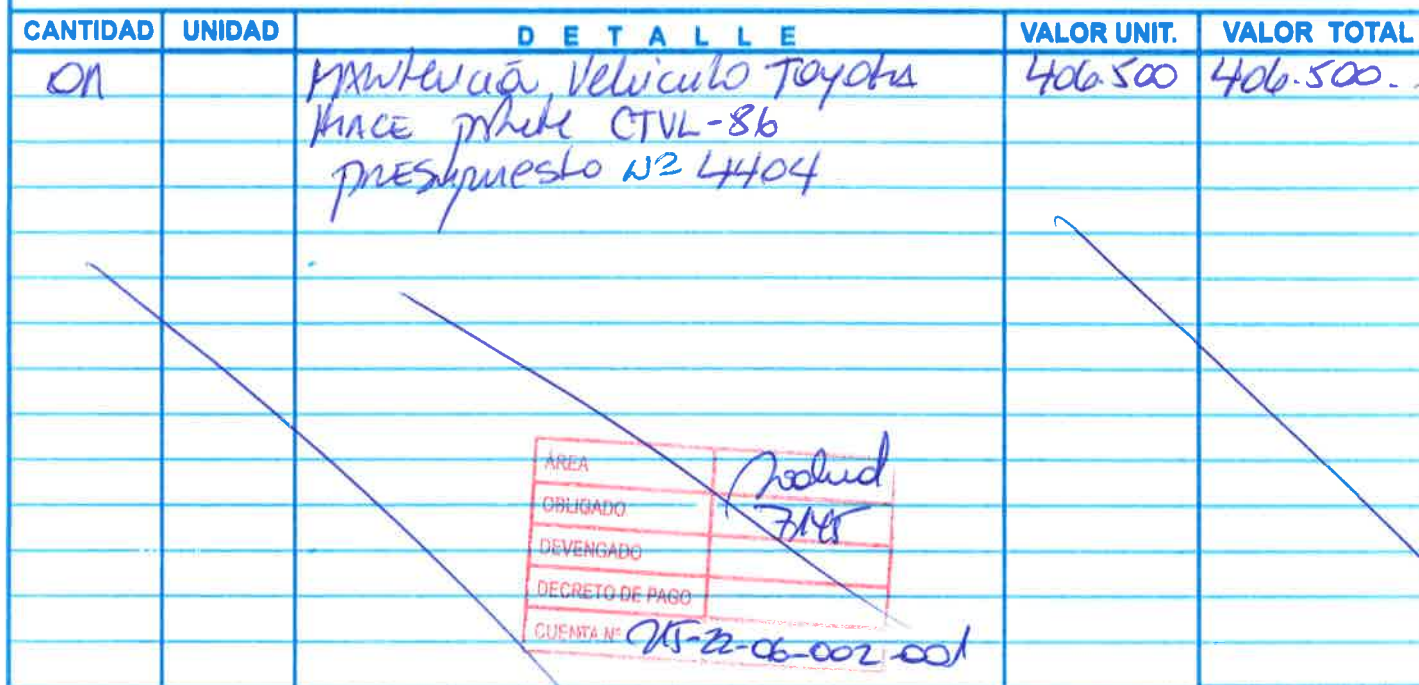 CANTIDAD UNIDAD DETALLE VALOR UNIT. VALOR TOTAL
01 Mantención Vehiculo Toyota 406.500 406.500.-
HIACE patente CTVL-86
presupuesto Nº 4404
ÁREA Salud
OBLIGADO 7145
DEVENGADO
DECRETO DE PAGO
CUENTA Nº 215-22-06-002-001